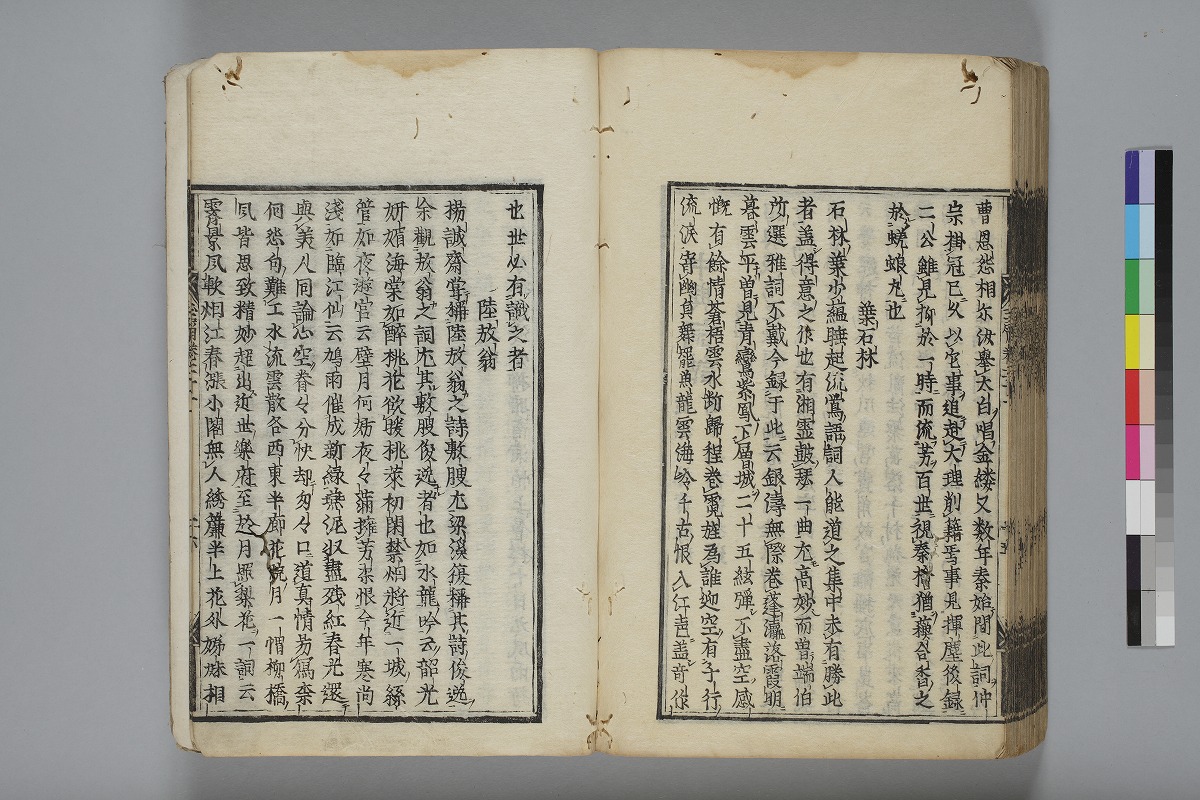 曹恩怨相尔汝舉大白唱金縷又数年秦始聞此詞仲
宗掛冠已久以它事追赴大理削籍焉事見揮麈後録
二公雖見抑於一時而流芳百世視秦檜猶蘓合香之
於蜣蜋丸也
葉石林
石林葉少蘊睡起流鶯語詞人能道之集中未有勝此
者盖得意之作也有湘霊鼓瑟一曲尤高妙而曽端伯
所選雅詞不載今録于此云銀濤無際巻蓬瀛落霞明
暮雲平曽見青鸞紫鳳下層城二十五絃弾不盡空感
慨有餘情蒼梧雲水断歸程巻霓旌為誰迎空有千行
流涙寄幽貞舞罷魚龍雲海晩千古恨入江声盖奇作
也世必有識之者
陸放翁
楊誠齋嘗稱陸放翁之詩敷腴尤梁溪復稱其詩俊逸
余觀放翁之詞尤其敷腴俊逸者也如水龍吟云韶光
妍媚海棠如醉桃花欲暖挑菜初閑禁烟將近一城絲
管如夜遊宫云璧月何妨夜々滿擁芳柔恨今年寒尚
淺如臨江仙云鳩雨催成新緑燕泥収盡残紅春光還
與美人同論心空眷々分袂却匆々只道真情易寫奈
何怨句難工水流雲散各西東半廊花院月一帽柳橋
風皆思致精妙超出近世樂府至於月照梨花一詞云
霽景風軟烟江春漲小閣無人綉簾半上花外姊妹相